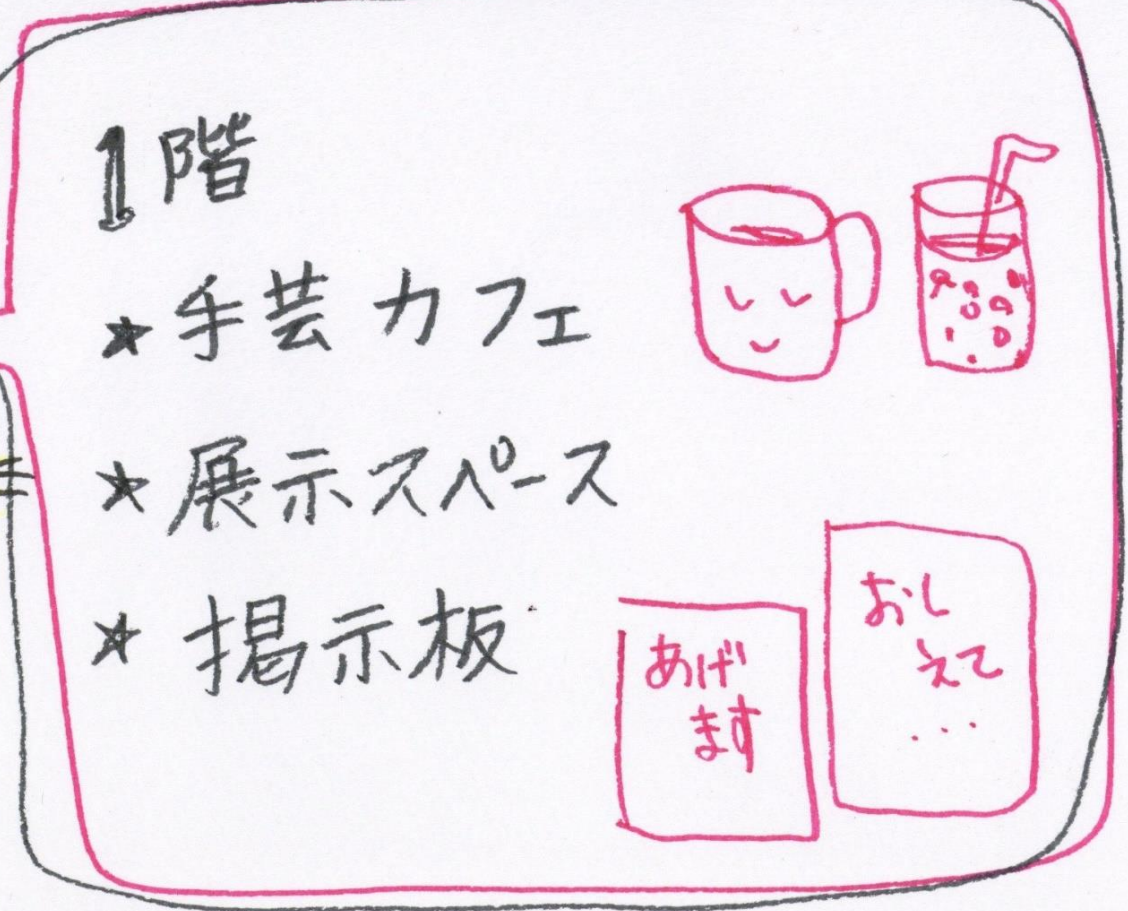 1階
★手芸カフェ
★展示スペース
★掲示板
あげ
ます
おし
えて
...